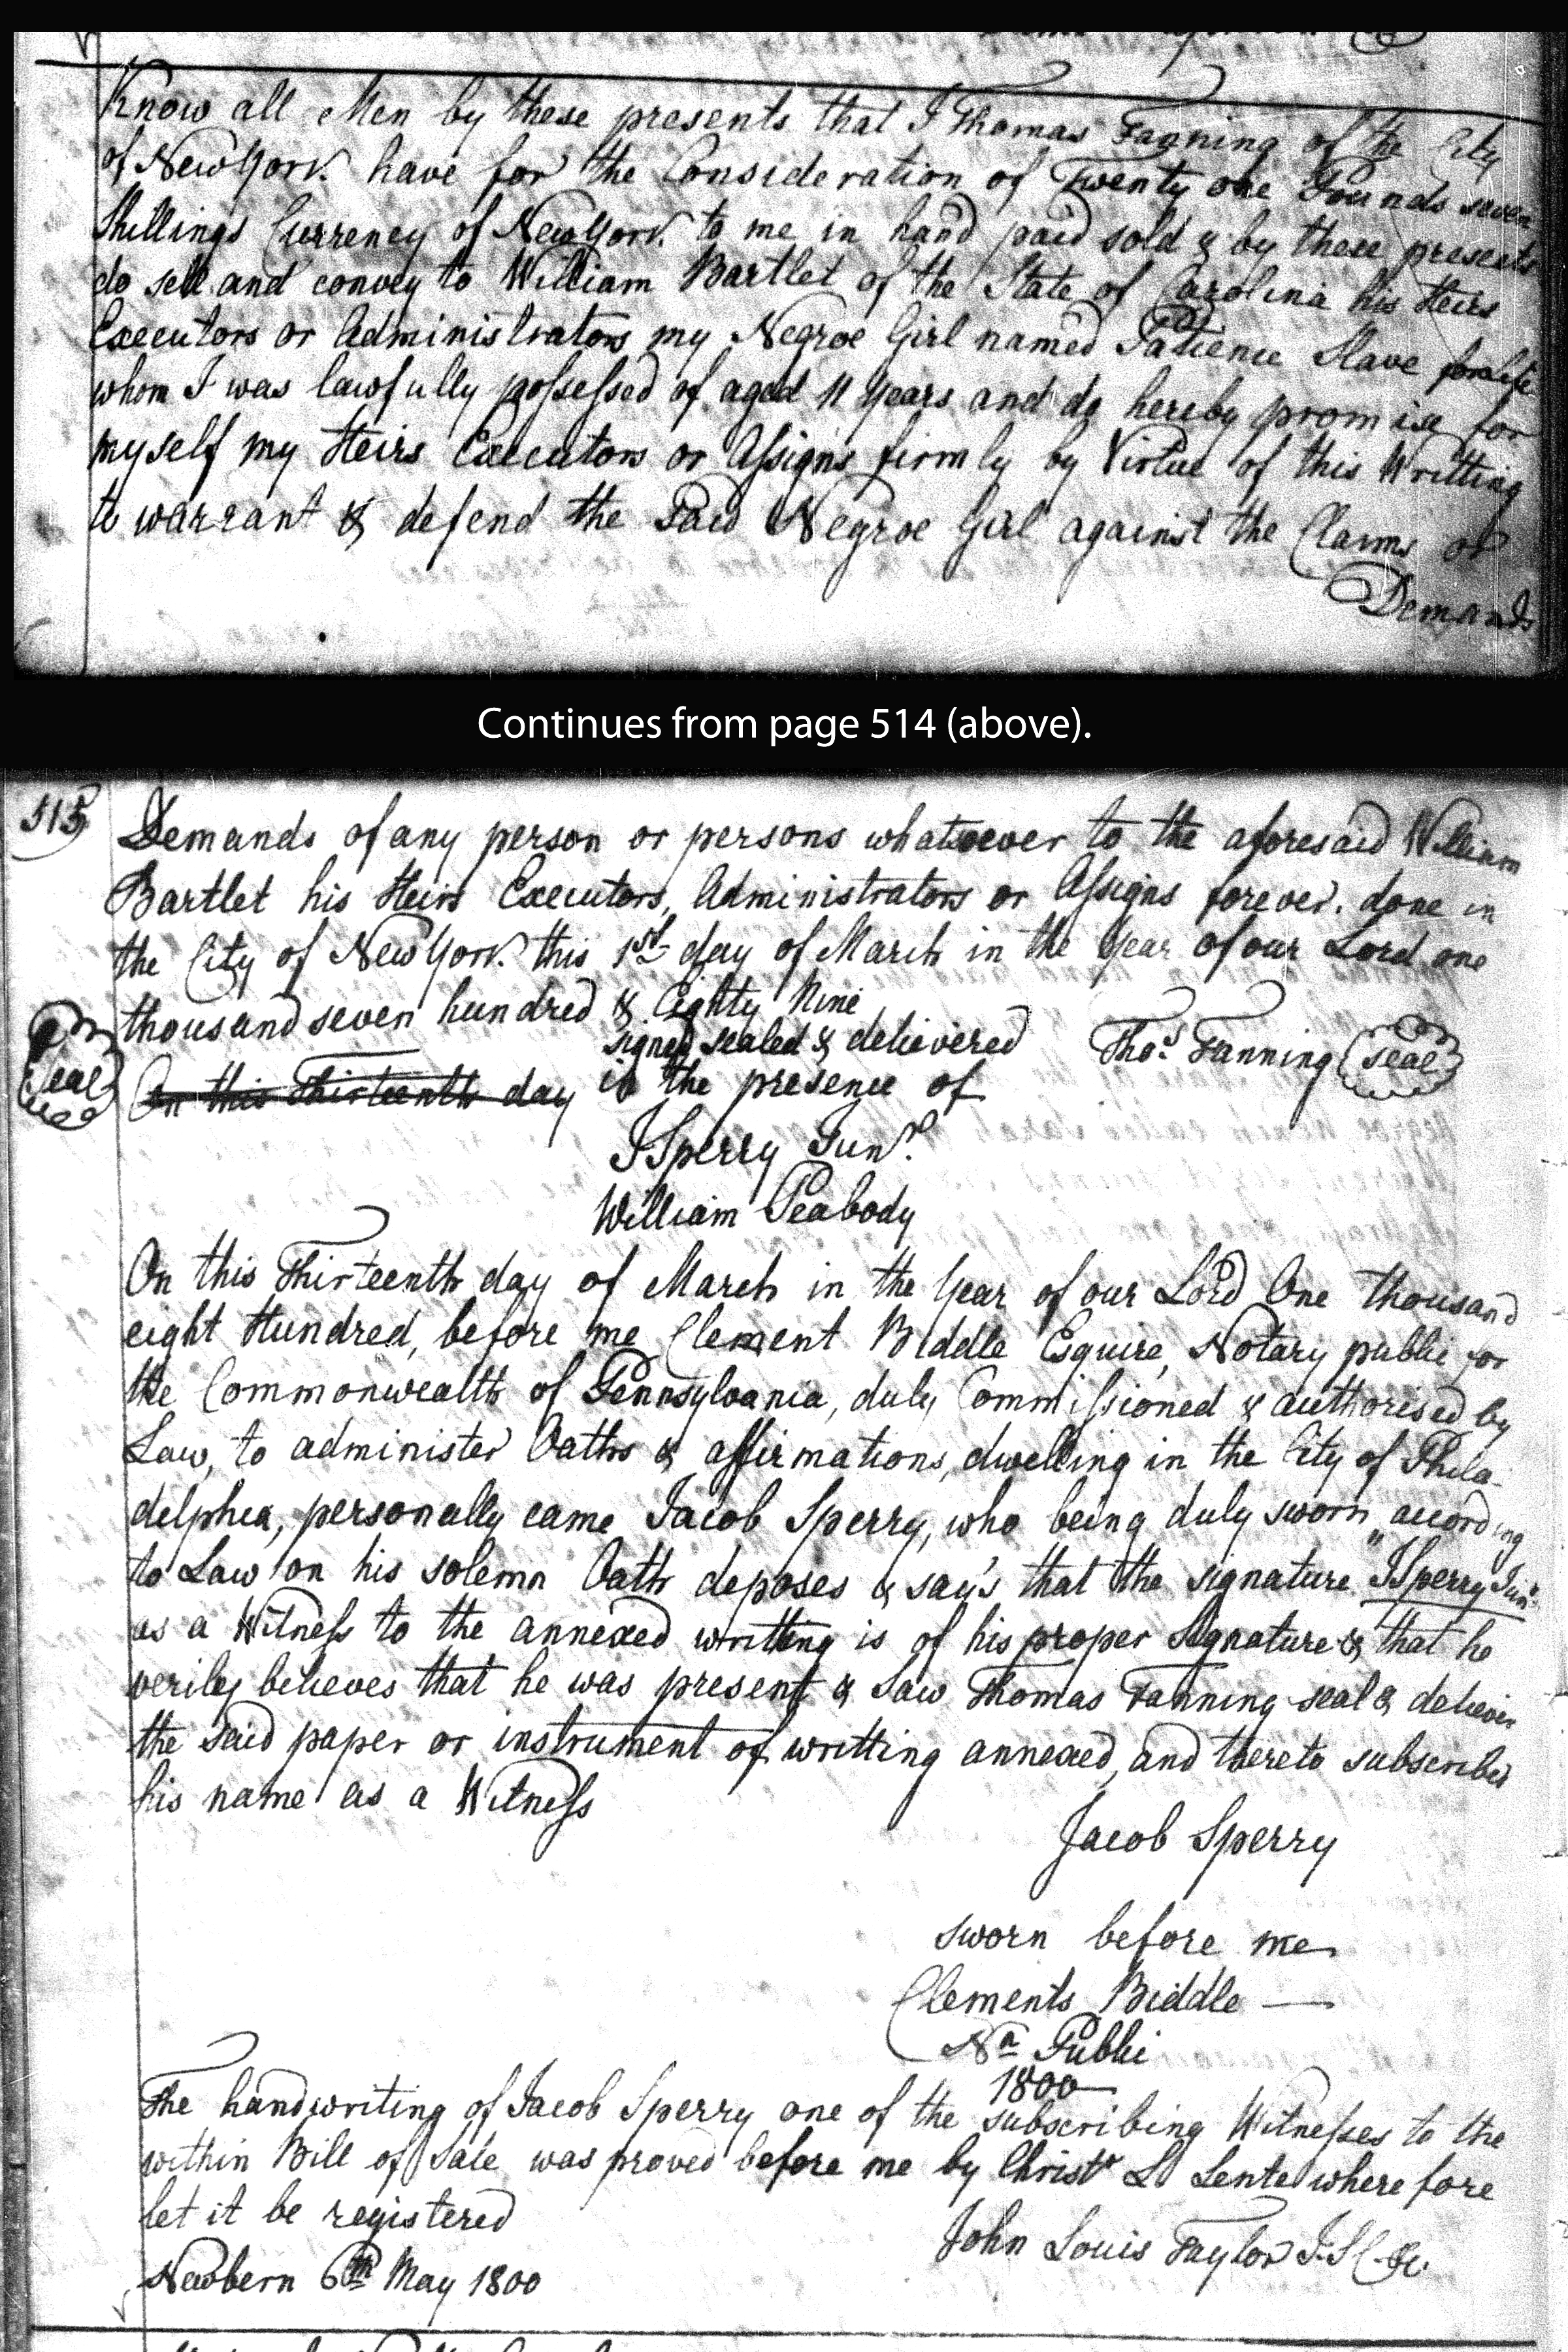 Know all Men by these presents that I Thomas Fanning of the City
of New York have for the Consideration of Twenty one Pounds seven
Shillings Currency of New York to me in hand paid sold & by these presents
do sell and convey to William Bartlet of the State of Carolina his Heirs
Executors or Administrators my Negroe Girl named Patience Slave for life
whom I was lawfully possessed of aged 11 Years and do hereby promise for
myself my Heirs Executors or Assigns firmly by Virtue of this Writting
to warrant & defend the Said Negroe Girl against the Claims or
Demands
Continues from page 514 (above).
515
Demands of any person or persons whatsoever to the aforesaid William
Bartlet his Heirs Executors, Administrators or Assigns forever. done in
the City of New York this 1st day of March in the Year of our Lord one
thousand seven hundred & Eighty Nine
signed sealed & delievered Thos. Fanning seal
seal On this Thirteenth day in the presence of
J Sperry Junr.
William Peabody
On this Thirteenth day of March in the Year of our Lord One thousand
eight Hundred, before me Clement Biddle Esquire, Notary public for
the Commonwealth of Pennsylvania, duly Commissioned & authorised by
Law, to administer Oaths & affirmations, dwelling in the City of Phila-
delphia, personally came Jacob Sperry, who being duly sworn according
to Law on his solemn Oath deposes & say's that the signature "J Sperry Junr.
as a Witness to the annexed writting is of his proper Signature & that he
verily believes that he was present & saw Thomas Fanning seal & deliever
the said paper or instrument of writting annexed, and thereto subscribed
his name as a Witness
Jacob Sperry
sworn before me
Clements Biddle —
Na Public
1800
The handwriting of Jacob Sperry one of the subscribing Witnesses to the
within Bill of Sale was proved before me by Christr L Lente wherefore
let it be registered
John Louis Taylor J. S C &c.
Newbern 6th May 1800